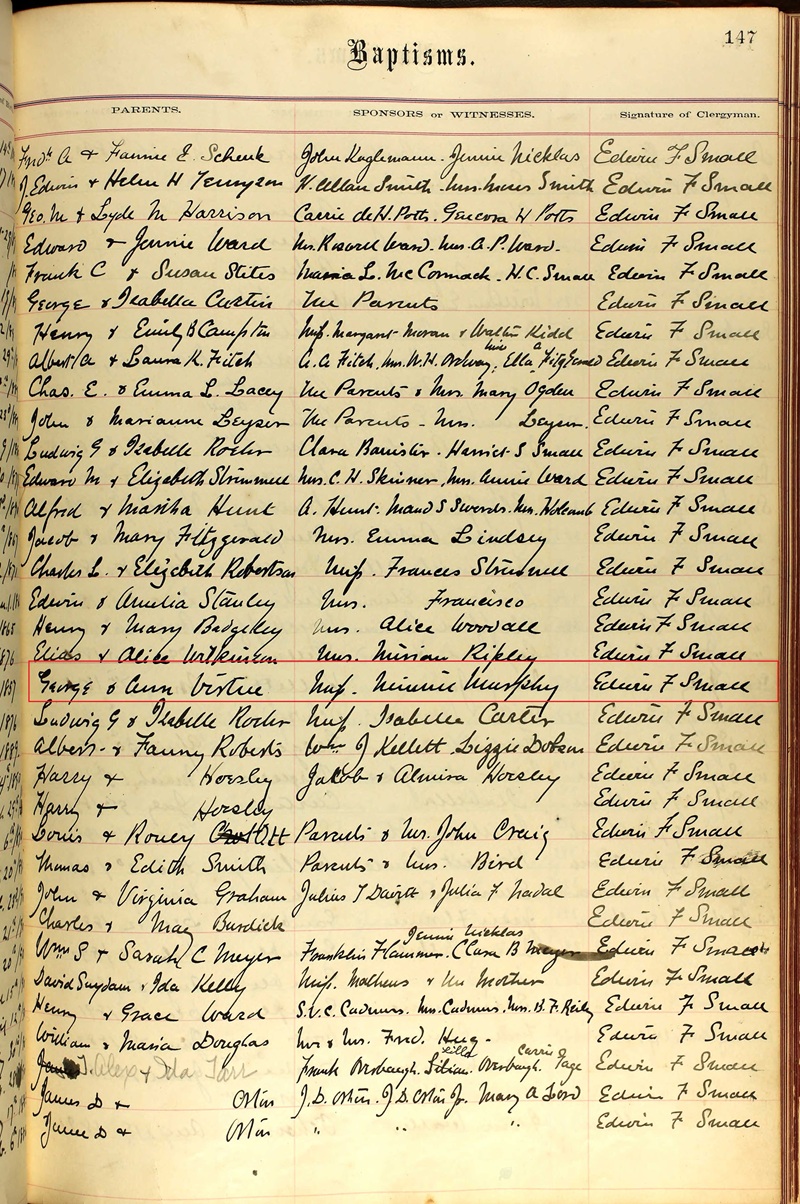 147
Baptisms.
PARENTS. SPONSORS or WITNESSES. Signature of Clergyman.
Fredk A & Fannie E. Schenk John Koglemann. Jennie Nicklas Edwin F Small
J Edwin & Helen H Tennyson H. Allan Smith. Mrs. Smith Edwin F Small
Geo. M & Lyde M Harrison Carrie deH. Potts. Genevra H Potts Edwin F Small
Edward & Jennie Ward Mrs. Roswell Ward. Mrs. A. P. Ward. Edwin F Small
Frank C & Susan Stites Maria L. McCormack. H. C. Small Edwin F Small
George & Isabella Curtin The Parents Edwin F Small
Henry & Emily B Campton Miss. Margaret Moran & Walter Kidd Edwin F Small
Albert A & Laura K. Fitch A. A. Fitch, Mrs. W. H. Ordway, Ella A FitzGerald Edwin F Small
Chas. E. & Emma L. Lacey The Parents & Mrs. Mary Ogden Edwin F Small
John & Marianne Leyser The Parents - Mrs. Leyser. Edwin F Small
Ludwig G & Isabelle Roehr Clara Banister. Harriet S Small Edwin F Small
Edward M & Elizabeth Strimmell Mrs. C. H. Skinner, Mrs. Annie Ward Edwin F Small
Alfred & Martha Hunt A. Hunt. Maud S Swords. Mrs. Holcomb Edwin F Small
Jacob & Mary Fitzgerald Mrs. Emma Lindsey Edwin F Small
Charles L. & Elizabeth Robertson Miss. Frances Strimmell Edwin F Small
Edwin & Amelia Stanley Mrs. Francisco Edwin F Small
Henry & Mary Badgeley Mrs. Alice Woodall Edwin F Small
Elias & Alice Wilkinson Mrs. Miriam Ripley Edwin F Small
George & Ann Virtue Miss. Minnie Murphy Edwin F Small
Ludwig G & Isabelle Roehr Miss. Isabella Carter Edwin F Small
Albert & Fanny Roberts Wm J Kellett. Lizzie Dobson Edwin F Small
Harry & Horsley Jakob & Almira Horsley Edwin F Small
Harry & Horsley Edwin F Small
Louis & Roney Ott Parents & Mrs. John Craig Edwin F Small
Thomas & Edith Smith Parents & Mrs. Bird Edwin F Small
John & Virginia Graham Julius T Davitt & Julia F Nadal Edwin F Small
Charles & May Burdick Edwin F Small
Jennie Nicklas
Wm S & Sarah C Meyer Franklin F Hammer. Clara B Meyer Edwin F Small
David Suydam & Ida Kelly Miss. Mathews & The Mother Edwin F Small
Henry & Grace Ward S. V. C. Cadmus. Mrs. Cadmus. Mrs. B. F. Reilly Edwin F Small
William & Maria Douglas Mr & Mrs. Fred. Hug. Edwin F Small
Lilla Carrie
T. Alex & Ida Tarr Frank Overbaugh. Lilian Overbaugh. Page Edwin F Small
James D & Ostin J. D. Ostin. J. D. Ostin Jr. Mary A Lord Edwin F Small
James D & Ostin " " " Edwin F Small